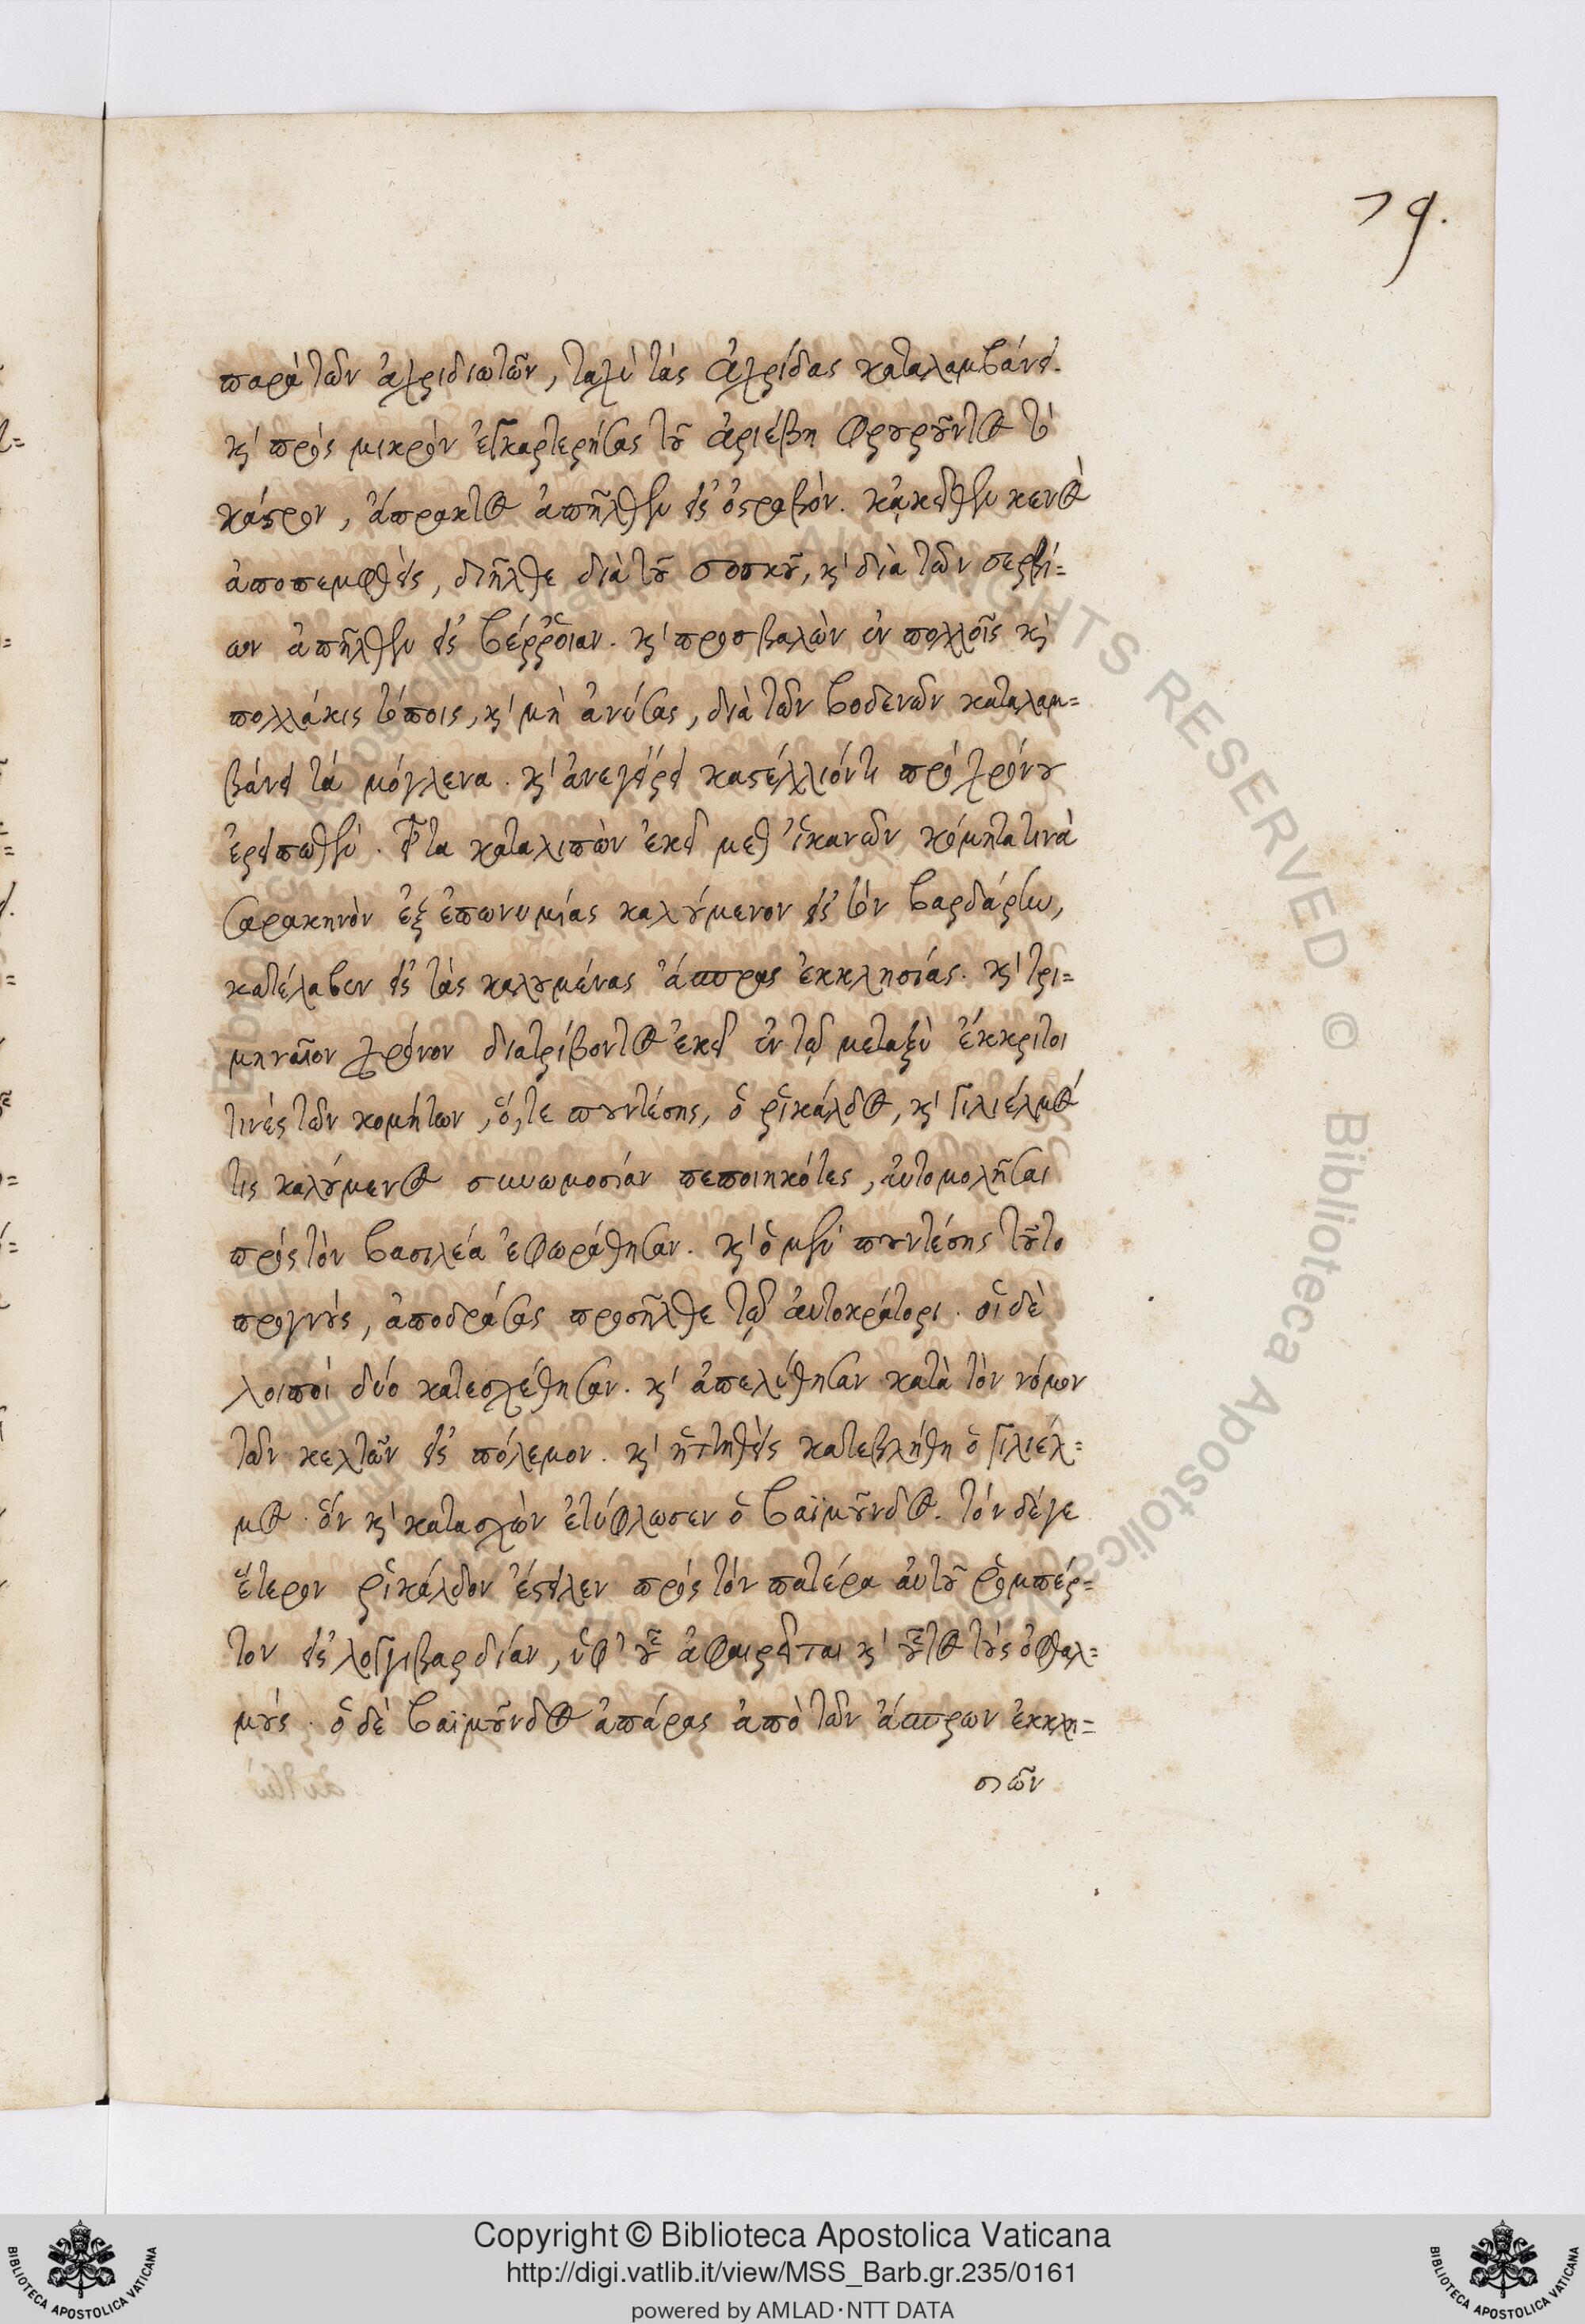 79.
παρὰ τῶν ἀχριδιωτῶν, ταχὺ τὰς ἀχρίδας καταλαμβάνει.
κ' πρὸς μικρὸν ἐγκαρτερήσας τοῦ ἀριέβη φρουροῦντος τὸ
κάστρον, ἄπρακτος ἀπῆλθεν εἰς ὀστροβόν. κἀκεῖθεν κενὸς
ἀποπεμφθεὶς, διῆλθε διὰ τοῦ σοσκοῦ, κ' διὰ τῶν σερβί=
ων ἀπῆλθεν εἰς βέρῤοιαν. κ' προσβαλὼν ἐν πολλοῖς κ'
πολλάκις τόποις, κ' μὴ ἀνύσας, διὰ τῶν βοδενῶν καταλαμ=
βάνει τὰ μόγλενα. κ' ἀνεγείρει καστέλλιόν τι πρὸ χρόνου
ἐρειπωθέν. εἶτα καταλιπὼν ἐκεῖ μεθ' ἱκανῶν κόμητα τινὰ
σαρακηνὸν ἐξ ἐπωνυμίας καλούμενον εἰς τὸν βαρδάρην,
κατέλαβεν εἰς τὰς καλουμένας ἄσπρας ἐκκλησίας. κ' τρι=
μηναῖον χρόνον διατρίβοντος ἐκεῖ ἐν τῷ μεταξὺ ἔκκριτοι
τινὲς τῶν κομήτων, ὅ,τε πουντέσης, ὁ ῥικάλδος, κ' γιλιέλμός
τις καλούμενος συνωμοσίαν πεποιηκότες, αὐτομολῆσαι
πρὸς τὸν βασιλέα ἐφωράθησαν. κ' ὁ μὲν πουντέσης τοῦτο
προγνοὺς, ἀποδράσας προσῆλθε τῷ αὐτοκράτορι. οἱ δὲ
λοιποὶ δύο κατεσχέθησαν. κ' ἀπελύθησαν κατὰ τὸν νόμον
τῶν κελτῶν εἰς πόλεμον. κ' ἡττηθεὶς κατεβλήθη ὁ γιλιέλ=
μος. ὃν κ' κατασχὼν ἐτύφλωσεν ὁ βαϊμοῦνδος. τὸν δέγε
ἕτερον ῥικάλδον ἔστειλεν πρὸς τὸν πατέρα αὐτοῦ ῥομπέρ=
τον εἰς λογγιβαρδίαν, ὑφ' οὗ ἀφαιρεῖται κ' οὗτος τοὺς ὀφθαλ=
μούς. ὁ δὲ βαϊμοῦνδος ἀπάρας ἀπὸ τῶν ἄσπρων ἐκκλη=
σιῶν
Copyright © Biblioteca Apostolica Vaticana
http://digi.vatlib.it/view/MSS_Barb.gr.235/0161
powered by AMLAD·NTT DATA